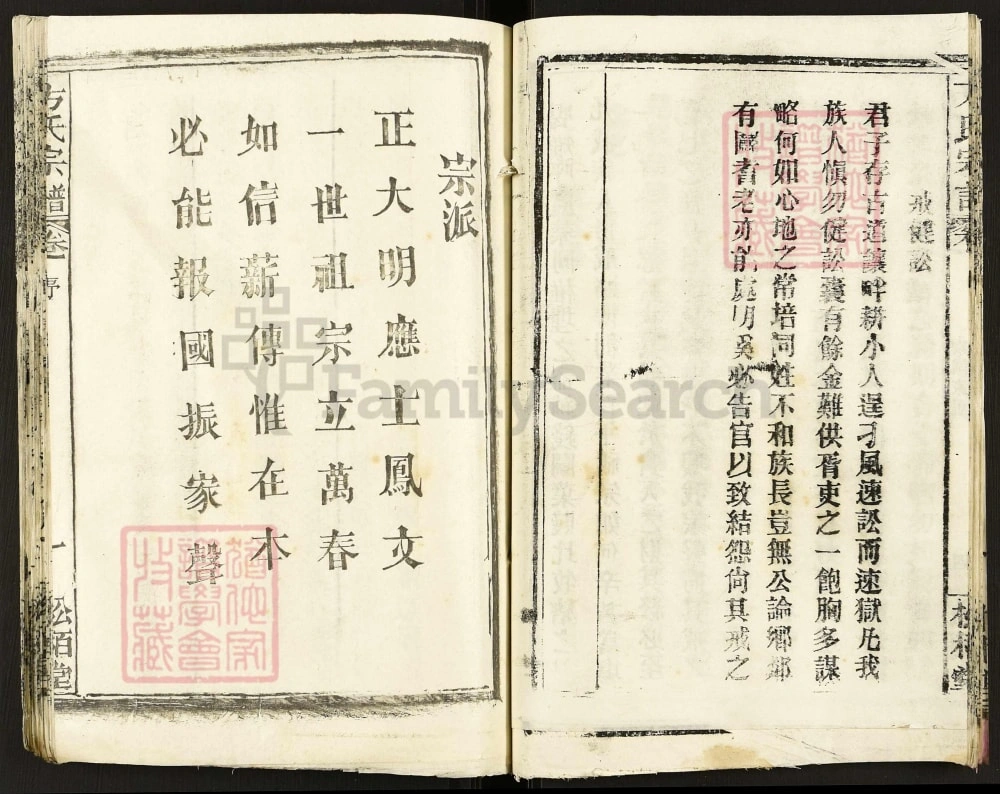 戒健訟
君子存古道讓畔耕小人逞刁風速訟而速獄凡我
族人慎勿健訟囊有餘金難供胥吏之一飽胸多謀
略何如心地之常培同姓不和族長豈無公論鄉鄰
有鬭耆老亦前處明奚必告官以致結怨尙其戒之
松柏堂
宗派
正大明應士鳳文
一世祖宗立萬春
如信薪傳惟在本
必能報國振家聲
方氏宗譜
卷
序
一
松栢堂
FamilySearch